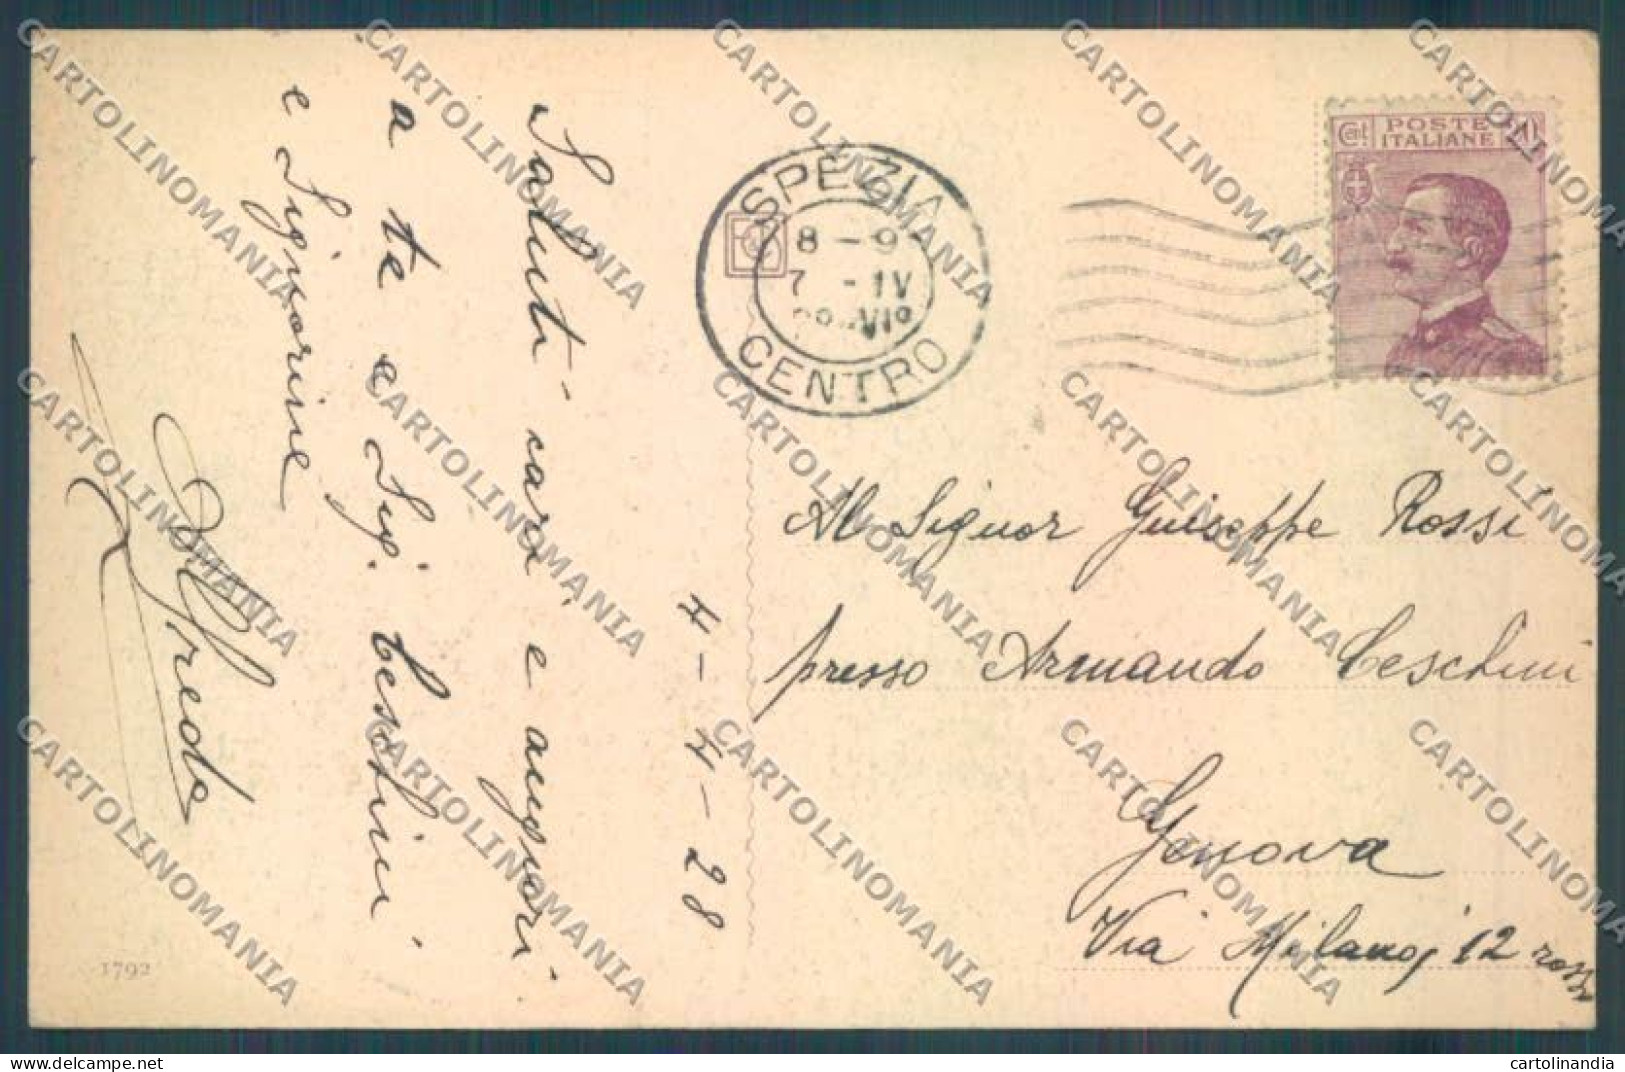 7-4-28
Saluti cari e auguri
a te e Sig. Ceschini
e Signorine
Alfredo
1792
SPEZIA
8-9
7-IV
CENTRO
POSTE
ITALIANE
Cent
Al Signor Giuseppe Rossi
presso Armando Ceschini
Genova
Via Milano, 12 rosso
CARTOLINOMANIA
cartolinandia